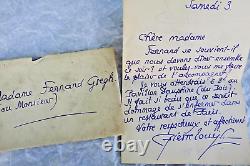 Samedi 3
Chère madame
Fernand se souvient-il
que nous devons dîner ensemble
ce soir ? et voulez-vous me faire
le plaisir de l'accompagner ?
Je vous attendrais à 8h au
Pavillon Dauphine (du Bois)
Il fait si beau que ce serait
dommage de s'enfermer dans
un restaurant de Paris
Votre respectueux et affectionné
Pierre Louÿs
Madame Fernand Gregh
(ou Monsieur)